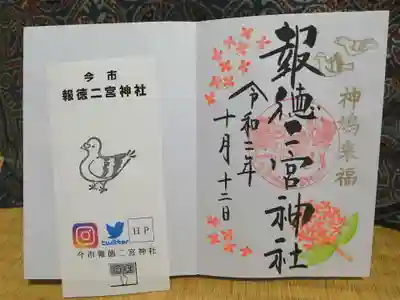 今市
報徳二宮神社
twitter
HP
今市報徳二宮神社
神鳩来福
報徳二宮神社
令和二年
十月十二日